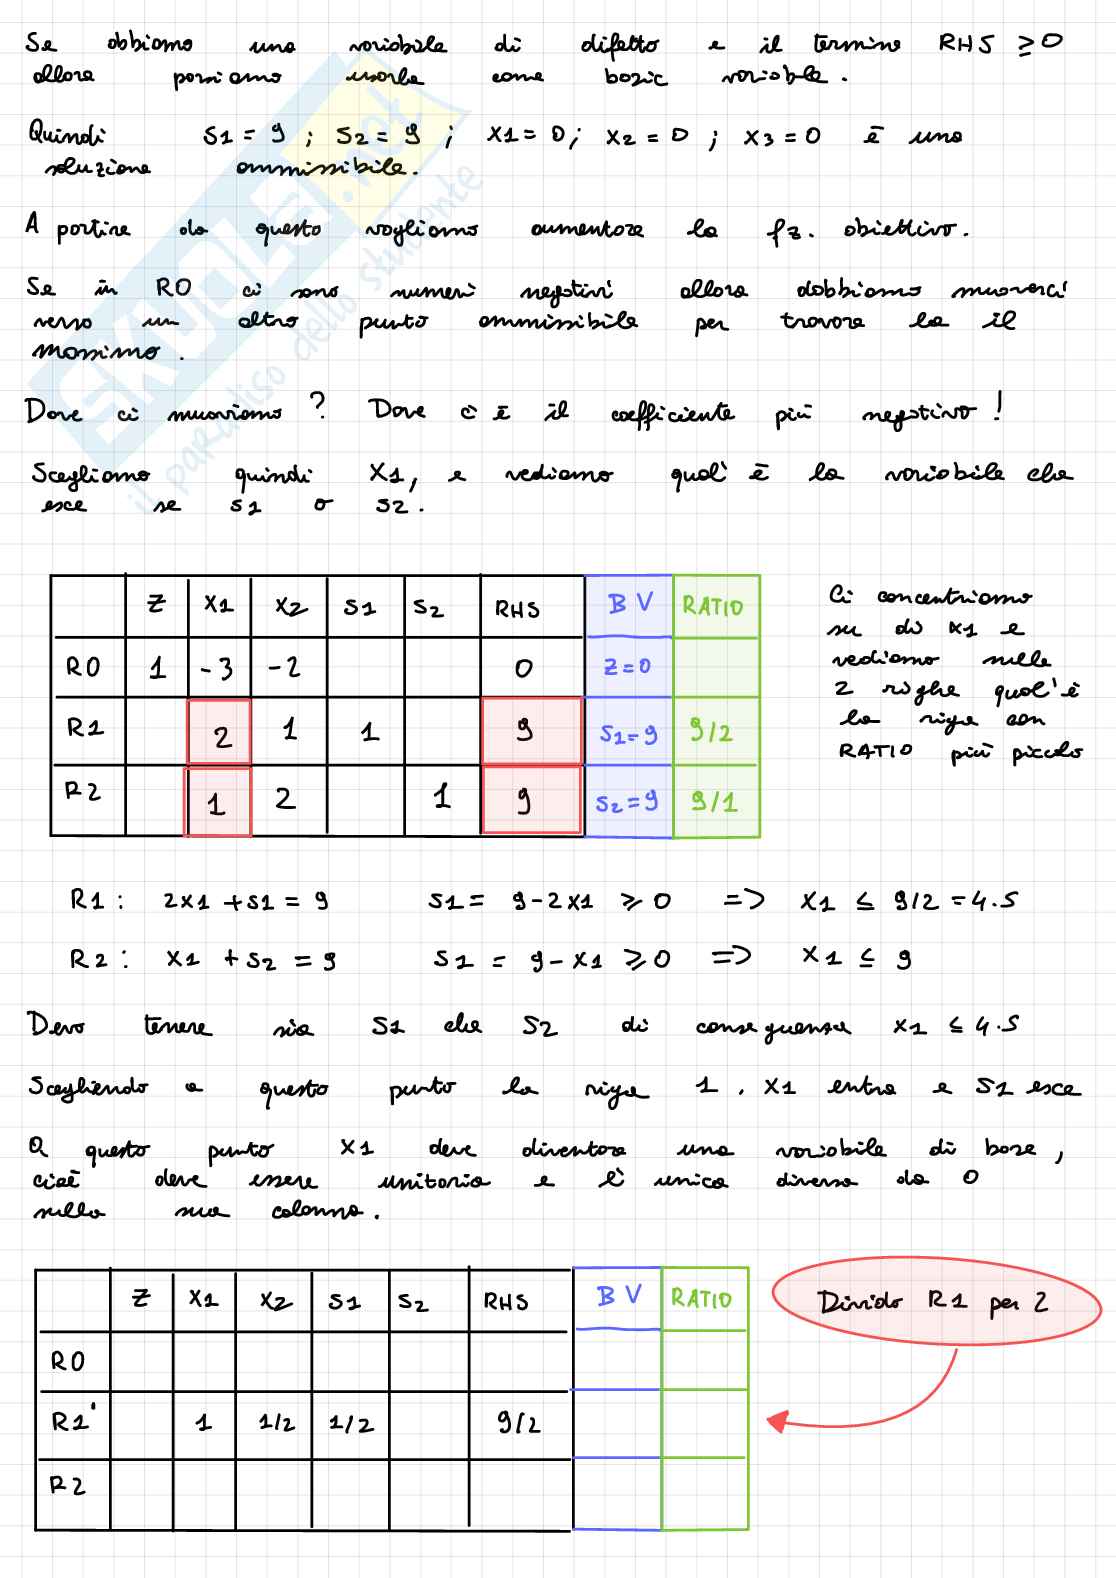 Se abbiamo una variabile di difetto e il termine RHS ≥ 0
allora possiamo usarla come basic variable.
Quindi S1 = 9 ; S2 = 9 ; X1 = 0 ; X2 = 0 ; X3 = 0 è una
soluzione ammissibile.
A partire da questo vogliamo aumentare la fz. obiettivo.
Se in R0 ci sono numeri negativi allora dobbiamo muoverci
verso un altro punto ammissibile per trovare la il
massimo.
Dove ci muoviamo? Dove c'è il coefficiente più negativo!
Scegliamo quindi X1, e vediamo qual'è la variabile che
esce se S1 o S2.
Z X1 X2 S1 S2 RHS BV RATIO
R0 1 -3 -2 0 Z=0
R1 2 1 1 9 S1=9 9/2
R2 1 2 1 9 S2=9 9/1
Ci concentriamo
su di X1 e
vediamo nelle
2 righe qual'è
la riga con
RATIO più piccolo
R1: 2X1 + S1 = 9 S1 = 9-2X1 ≥ 0 => X1 ≤ 9/2 = 4.5
R2: X1 + S2 = 9 S1 = 9-X1 ≥ 0 => X1 ≤ 9
Devo tenere sia S1 che S2 di conseguenza X1 ≤ 4.5
Scegliendo a questo punto la riga 1, X1 entra e S1 esce
A questo punto X1 deve diventare una variabile di base,
cioè deve essere unitaria e l'unica diversa da 0
nella sua colonna.
Z X1 X2 S1 S2 RHS BV RATIO
R0
R1' 1 1/2 1/2 9/2
R2
Divido R1 per 2
SKUOLA.net
il paradiso dello studente